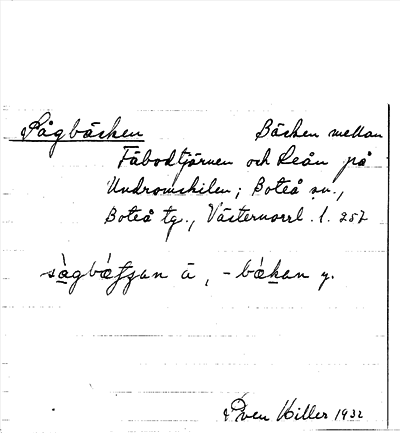 Sågbäcken Bäcken mellan
Fäbodtjärnen och Leån på
Undromskilen; Boteå sn.,
Boteå tg., Västernorrl. l. 257
sàgbáʃʃan ä, -bǽkan y.
Sven Hiller 1932